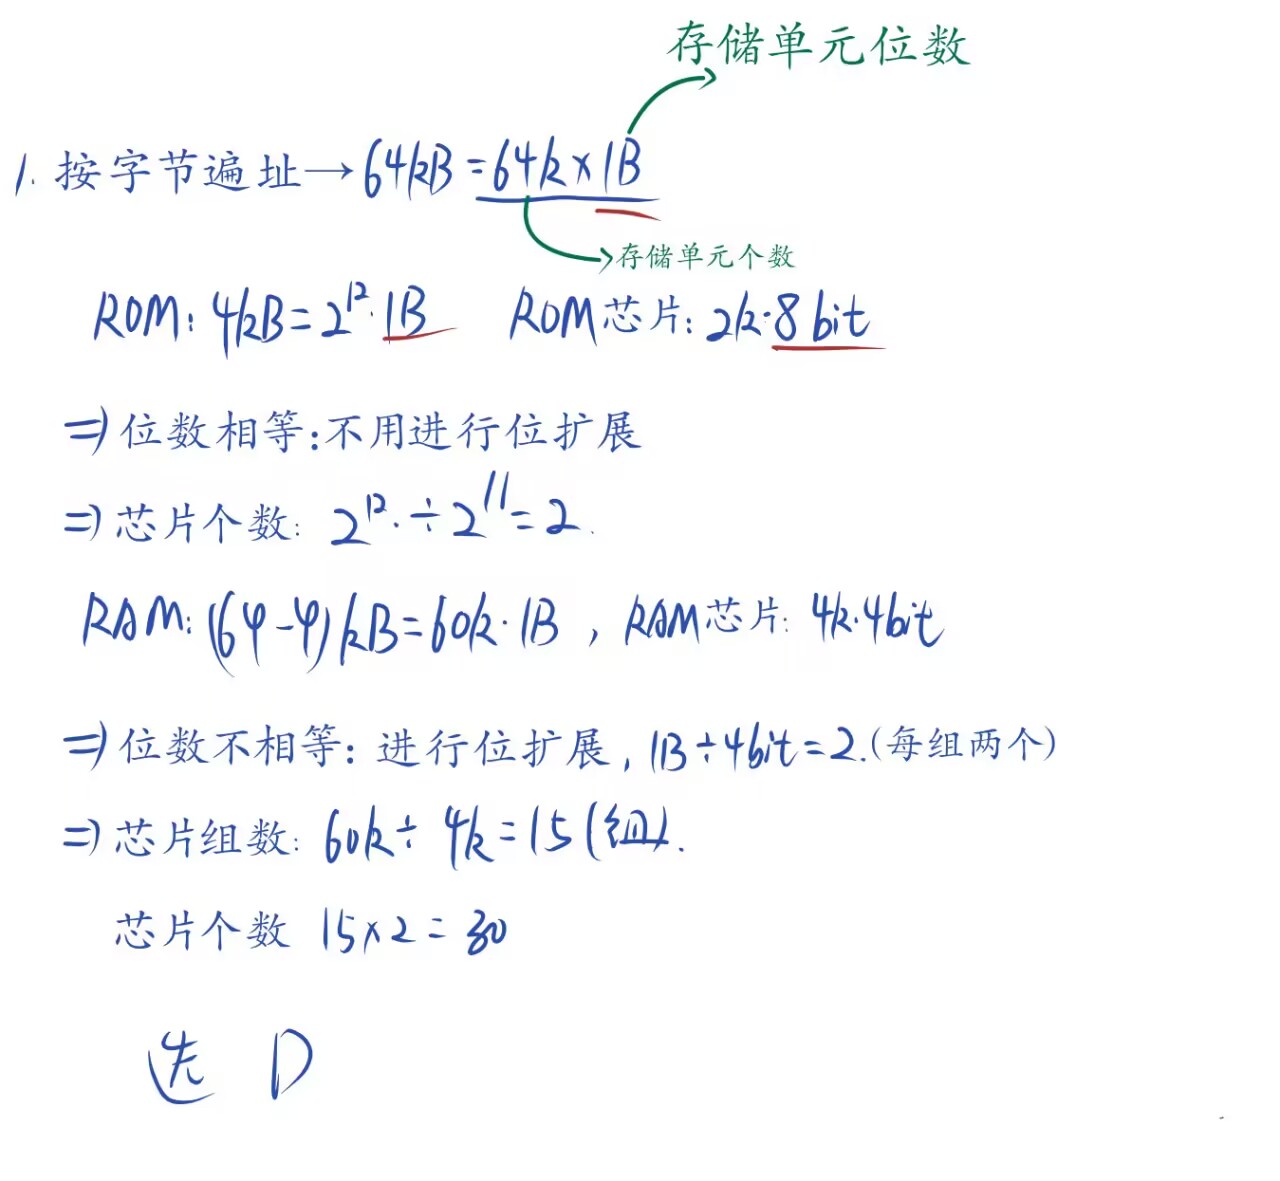 存储单元位数
1. 按字节遍址→64kB=64k×1B
存储单元个数
ROM: 4kB=2¹²·1B ROM芯片: 2k·8bit
⇒位数相等:不用进行位扩展
⇒芯片个数: 2¹²·÷2¹¹=2.
RAM: (64-4)kB=60k·1B , RAM芯片: 4k·4bit
⇒位数不相等: 进行位扩展, 1B÷4bit=2.(每组两个)
⇒芯片组数: 60k÷4k=15(组).
芯片个数 15×2=30
选 D